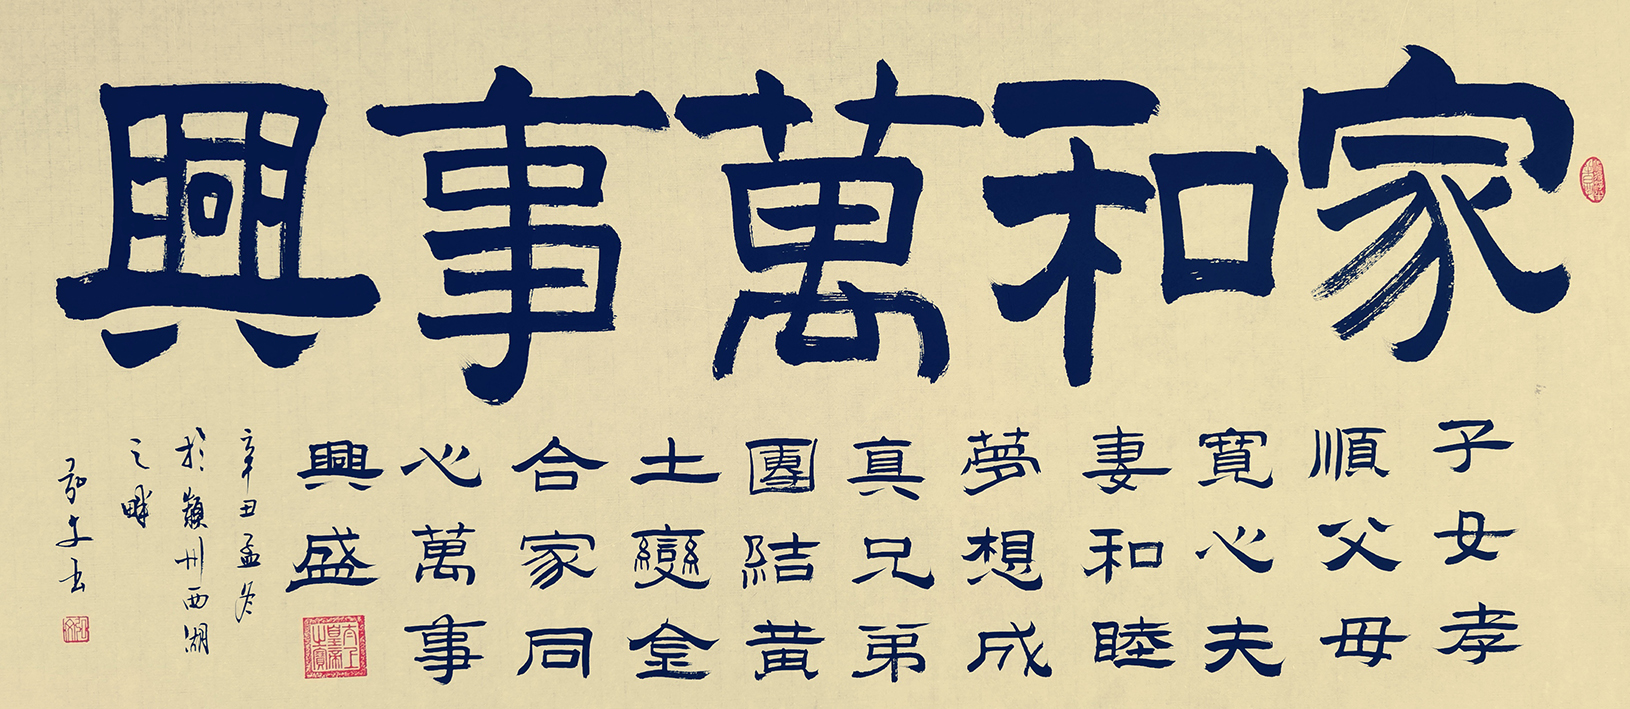 家和萬事興
子女孝
順父母
寬心夫
妻和睦
夢想成
真兄弟
團結黄
土變金
合家同
心萬事
興盛
太上
皇帝
之寶
辛丑孟冬
於潁州西湖
之畔
文书